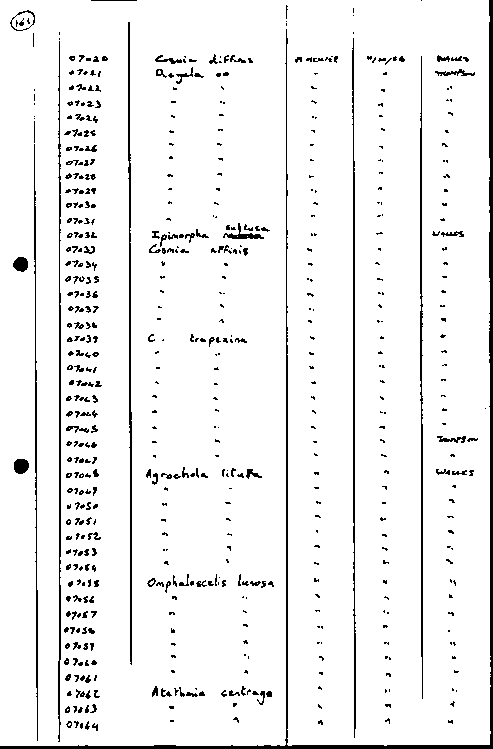 161
07020 Cosmia diffinis
07021 " " THOMPSON
07022 " " " " "
07023 " " " " "
07024 " " " " "
07025 " " " " "
07026 " " " " "
07027 " " " " "
07028 " " " " "
07029 " " " " "
07030 " " " " "
07031 " " " " "
07032 Ipimorpha subtusa " " WALLES
07033 Cosmia affinis " " "
07034 " " " " "
07035 " " " " "
07036 " " " " "
07037 " " " " "
07038 " " " " "
07039 C. trapezina " " "
07040 " " " " "
07041 " " " " "
07042 " " " " "
07043 " " " " "
07044 " " " " "
07045 " " " " "
07046 " " " " THOMPSON
07047 " " " " "
07048 Agrochola litura " " WALLES
07049 " " " " "
07050 " " " " "
07051 " " " " "
07052 " " " " "
07053 " " " " "
07054 " " " " "
07055 Omphaloscelis lunosa " " "
07056 " " " " "
07057 " " " " "
07058 " " " " "
07059 " " " " "
07060 " " " " "
07061 " " " " "
07062 Atethmia centrago " " "
07063 " " " " "
07064 " " " " "